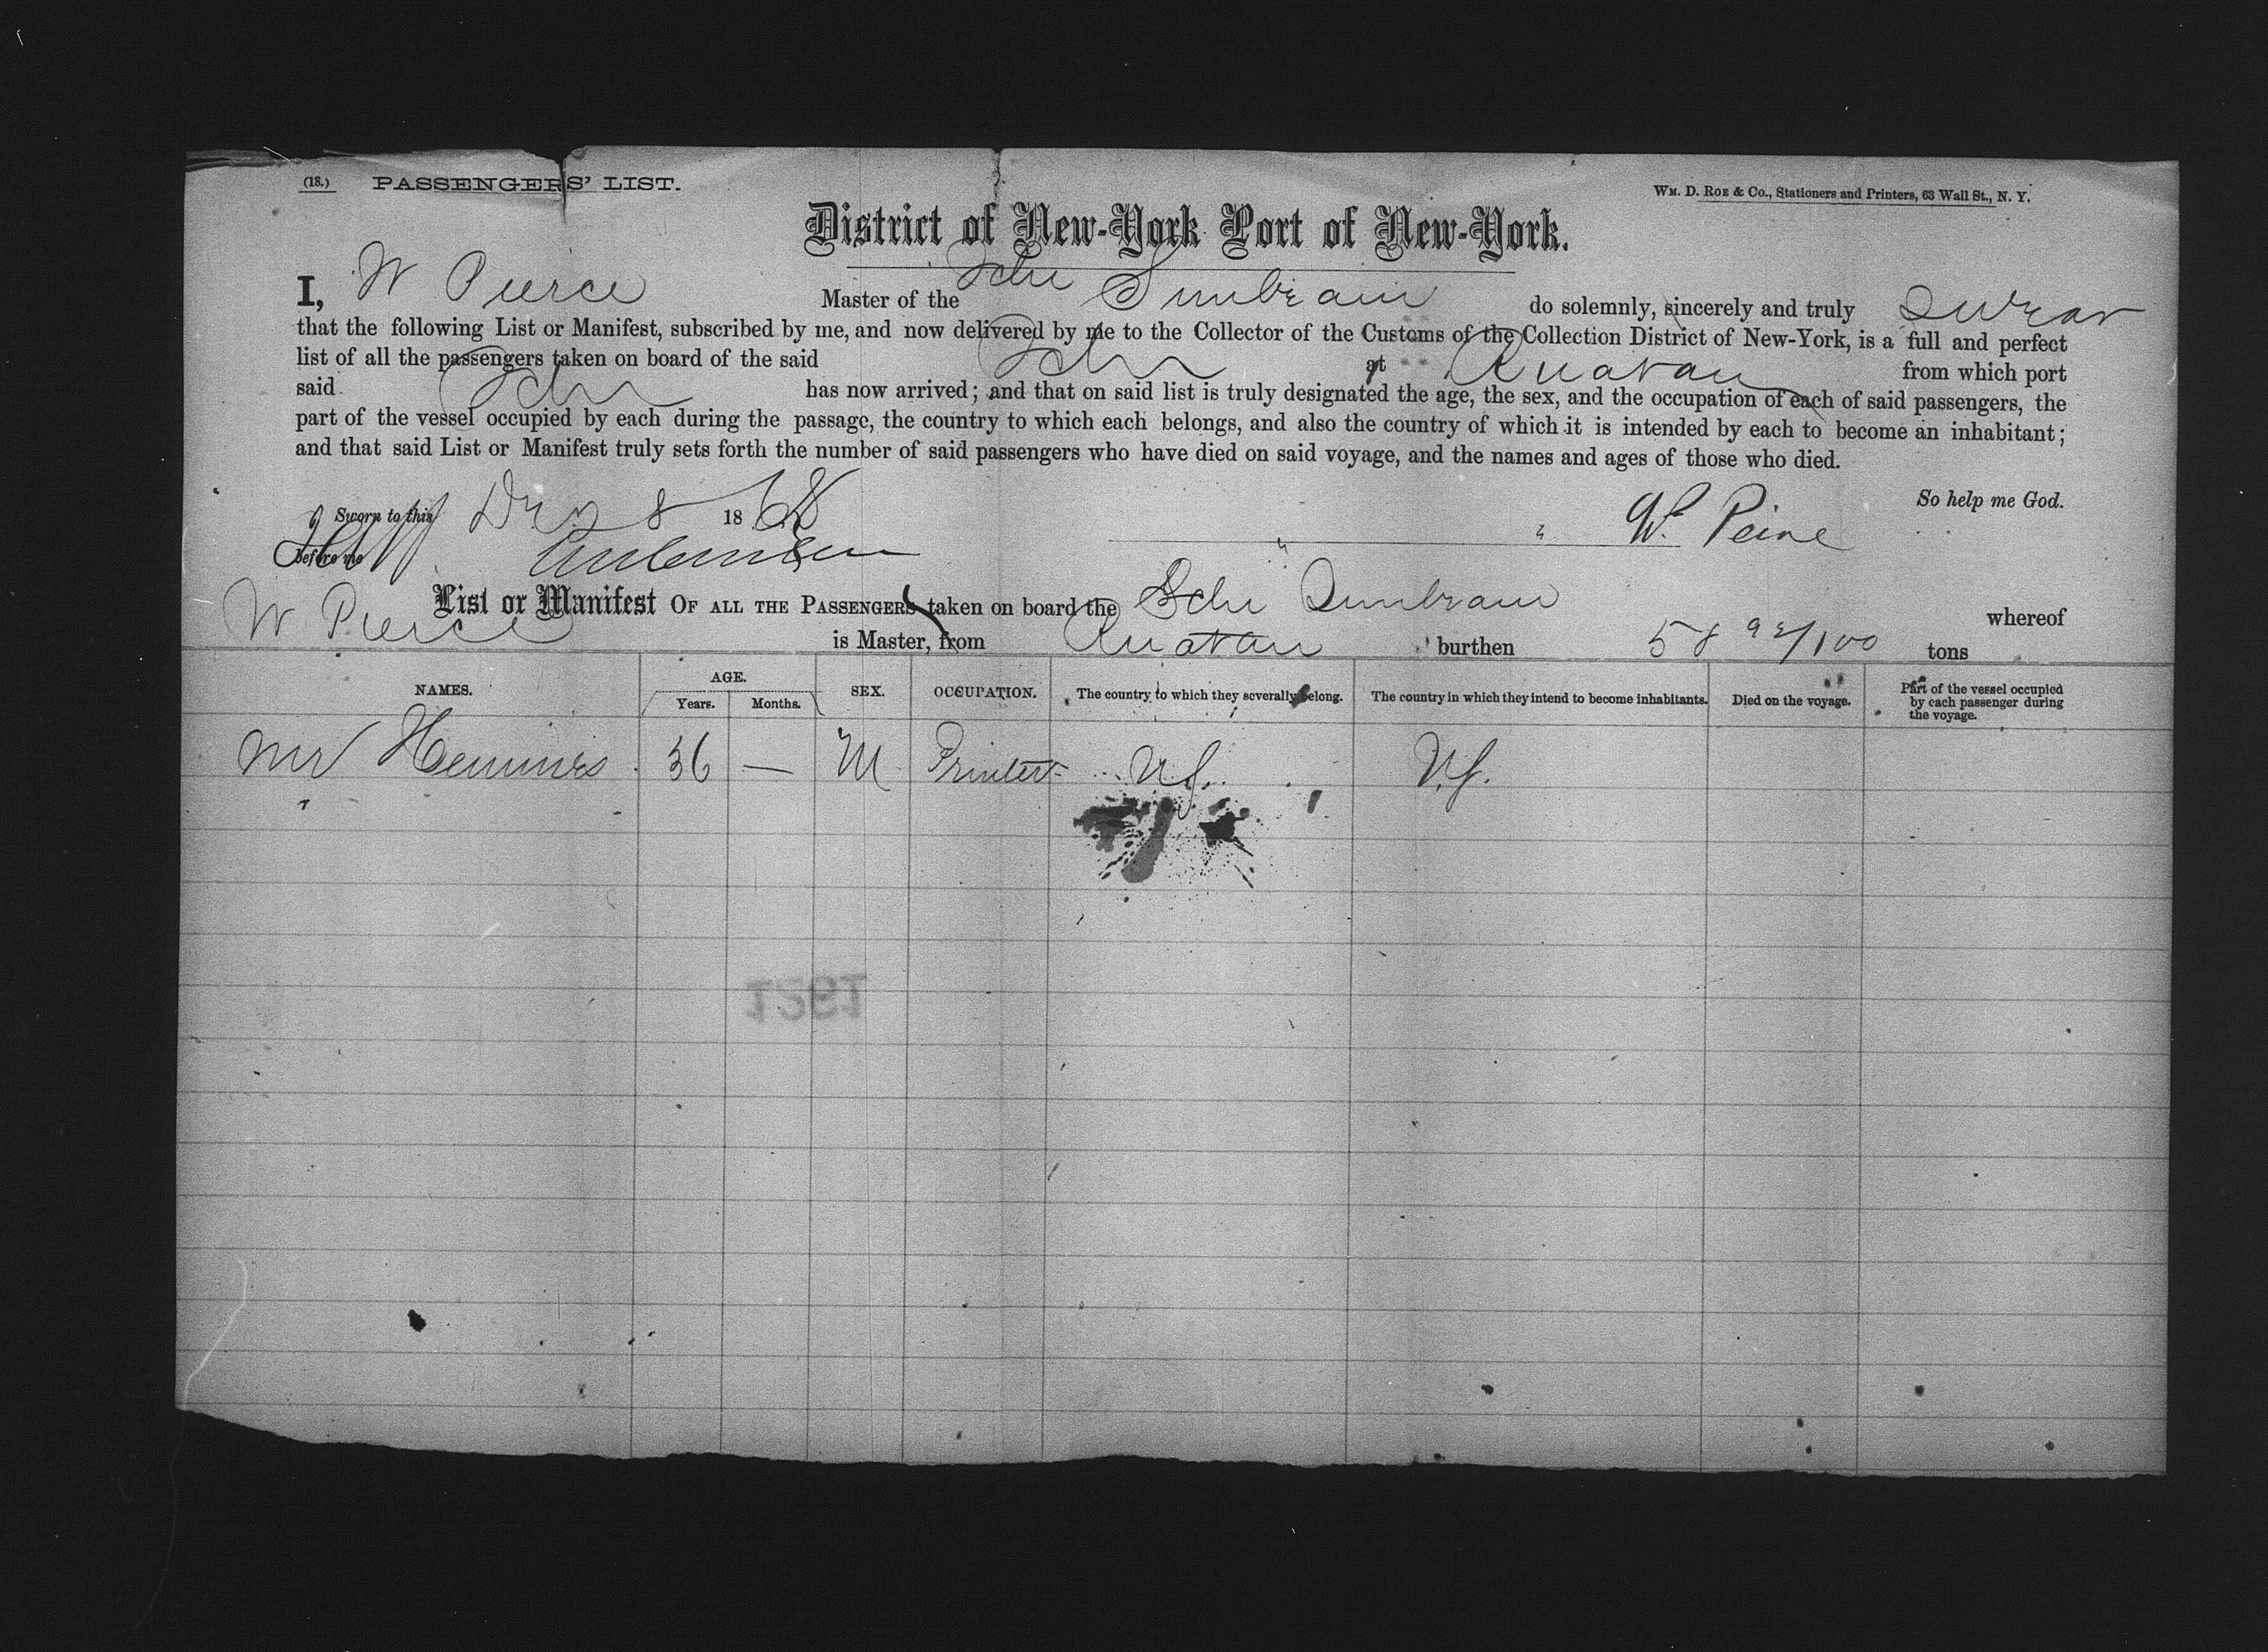 (18.) PASSENGERS' LIST.
WM. D. ROE & Co., Stationers and Printers, 63 Wall St., N. Y.
District of New-York Port of New-York.
I, W Pierce Master of the Schr Sunbeam do solemnly, sincerely and truly swear
that the following List or Manifest, subscribed by me, and now delivered by me to the Collector of the Customs of the Collection District of New-York, is a full and perfect
list of all the passengers taken on board of the said Schr at Ruatan from which port
said Schr has now arrived; and that on said list is truly designated the age, the sex, and the occupation of each of said passengers, the
part of the vessel occupied by each during the passage, the country to which each belongs, and also the country of which it is intended by each to become an inhabitant;
and that said List or Manifest truly sets forth the number of said passengers who have died on said voyage, and the names and ages of those who died.
So help me God.
Sworn to this Dec 8 1868
W. Peirce
before me
List or Manifest OF ALL THE PASSENGERS taken on board the Schr Sunbeam whereof
W Pierce is Master, from Ruatan burthen 58 92/100 tons
NAMES. AGE. Years. Months. SEX. OCCUPATION. The country to which they severally belong. The country in which they intend to become inhabitants. Died on the voyage. Part of the vessel occupied by each passenger during the voyage.
Mr 36 — M Printer U.S. U.S.
1261